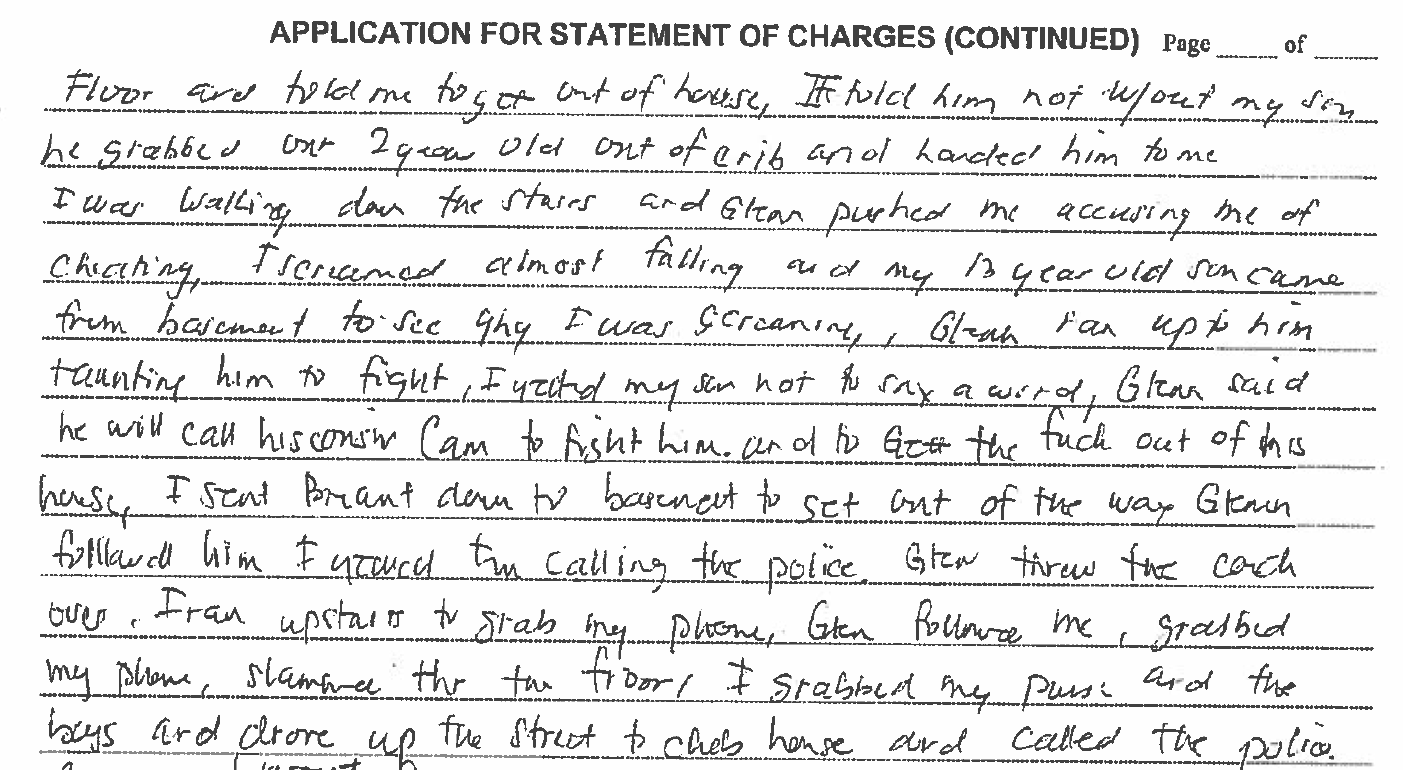 APPLICATION FOR STATEMENT OF CHARGES (CONTINUED) Page ____ of ____
Floor and told me to get out of house, I told him not w/out my son
he grabbed our 2 year old out of crib and handed him to me
I was walking down the stairs and Glenn pushed me accusing me of
cheating, I screamed almost falling and my 13 year old son came
from basement to see why I was screaming, Glenn ran up to him
taunting him to fight, I yelled my son not to say a word, Glenn said
he will call his cousin Cam to fight him. and to Get the fuck out of his
house, I sent Briant down to basement to get out of the way Glenn
followed him I yelled I'm calling the police. Glenn threw the couch
over. I ran upstairs to grab my phone, Glenn followed me, grabbed
my phone, slammed the floor, I grabbed my purse and the
boys and drove up the street to house and called the police.